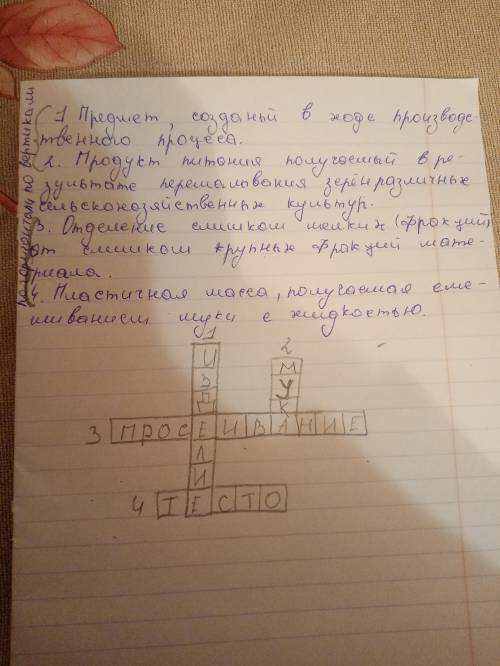 1 Предмет, созданый в ходе производс-
твенного процеса.
2. Продукт питания получаемый в ре-
зультате перемалывания зерен различных
сельскохозяйственных культур.
3. Отделение слишком мелких (фракций)
от слишком крупных фракций мате-
риала.
4. Пластичная масса, получаемая сме-
шиванием муки с жидкостью.
по вертикали
1 ИЗДЕЛИЕ
2 МУКА
3 ПРОСЕИВАНИЕ
4 ТЕСТО